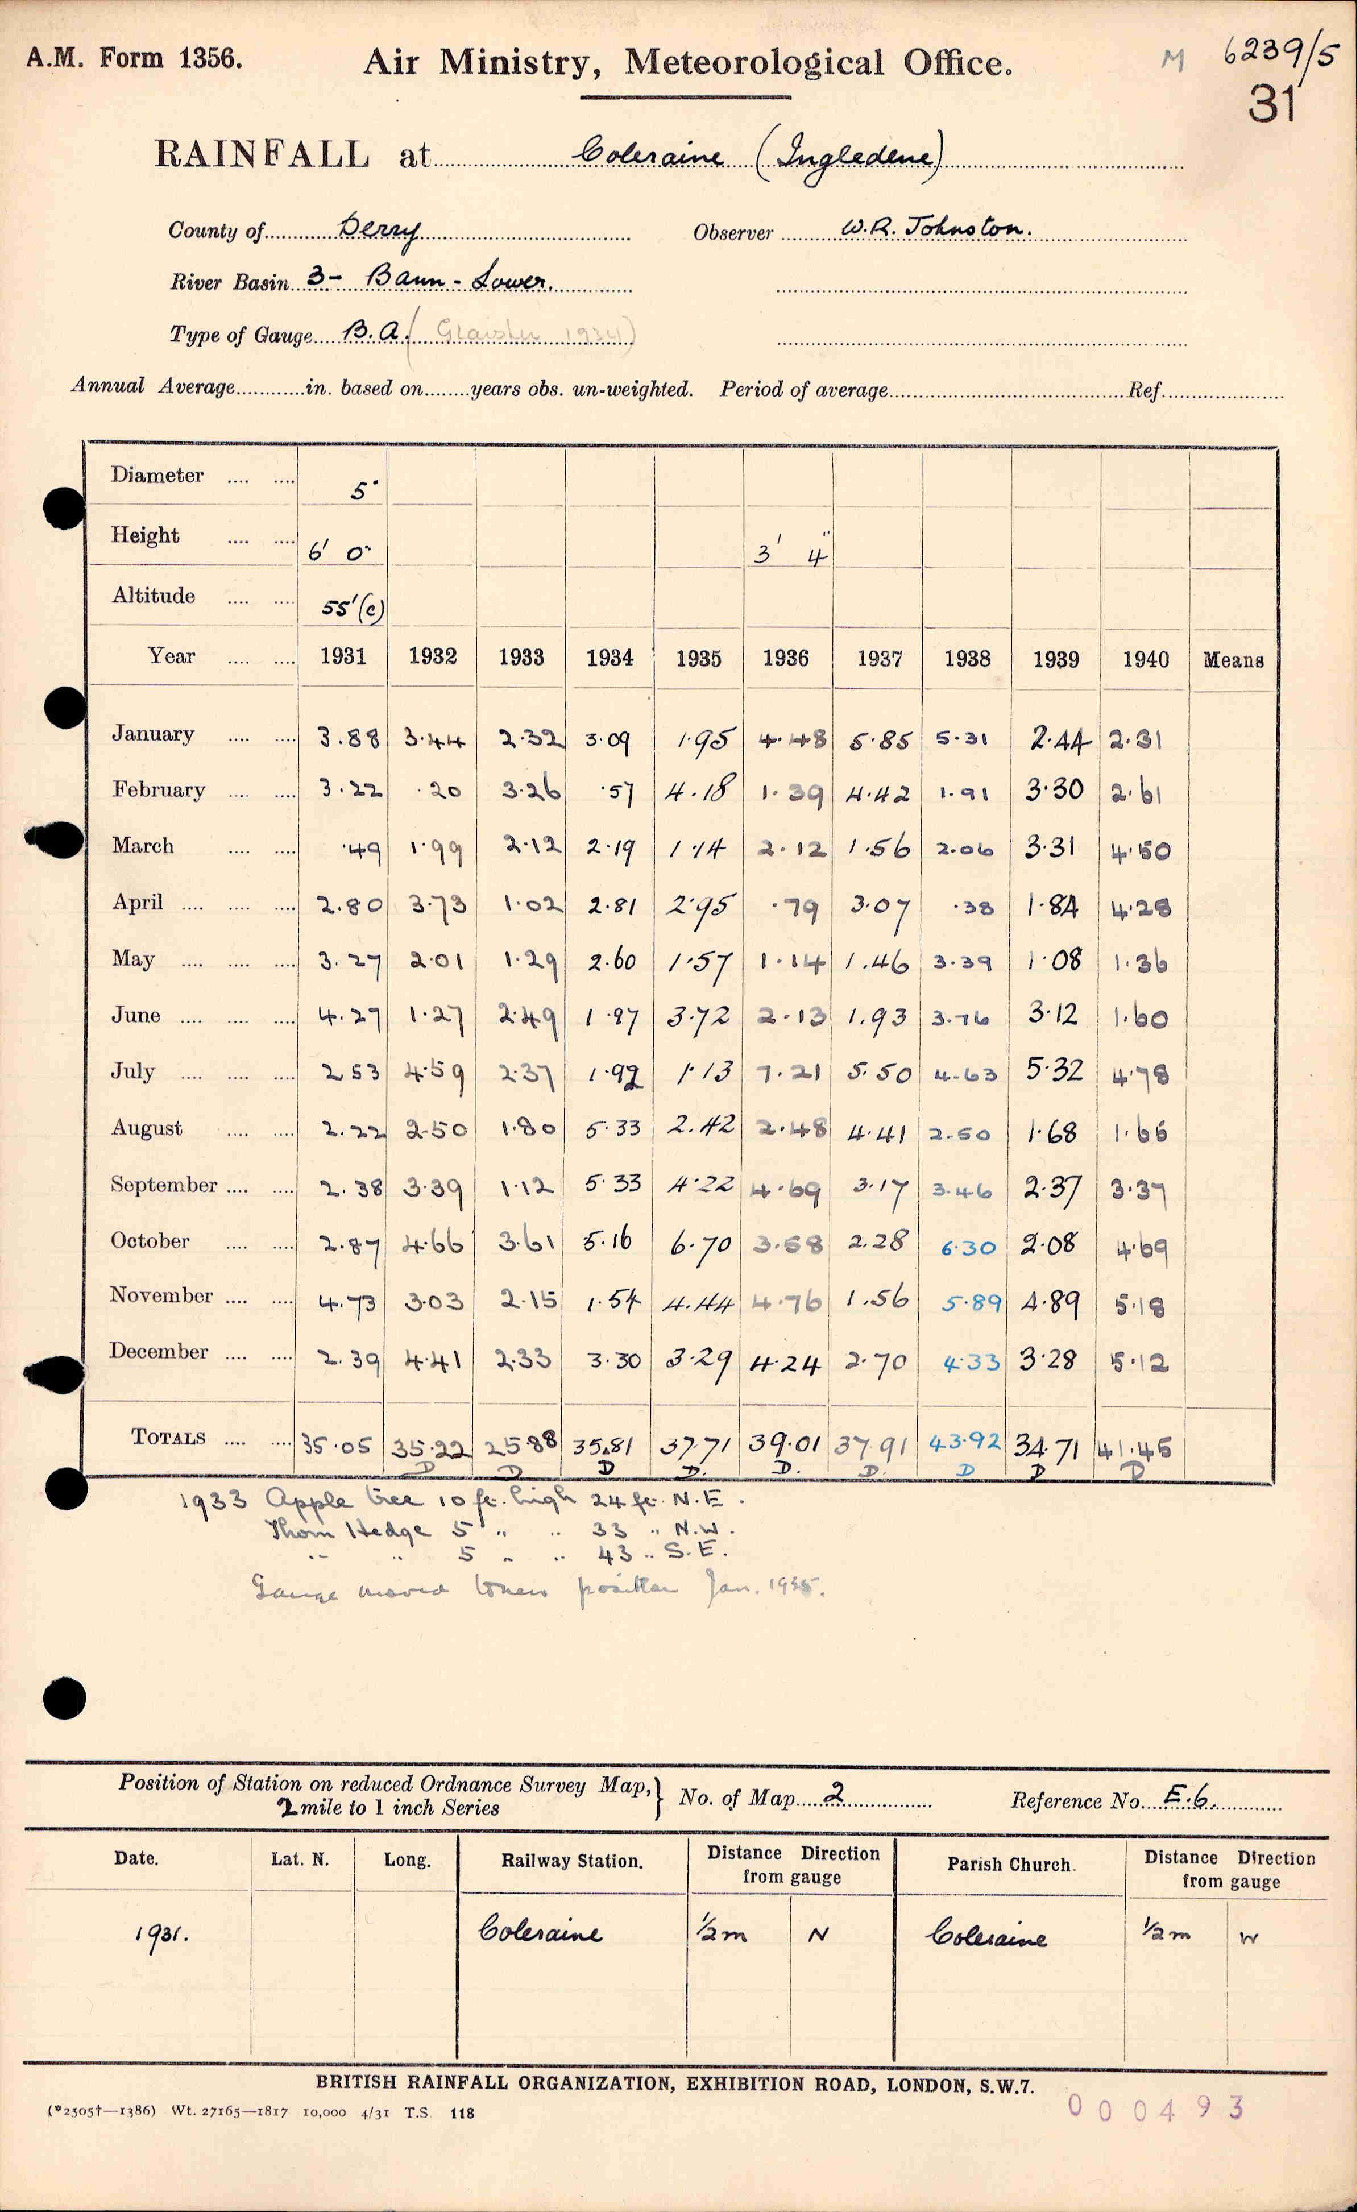 A.M. Form 1356.
Air Ministry, Meteorological Office.
M 6239/5
31
RAINFALL at Coleraine (Ingledene)
County of Derry Observer W.R. Johnston.
River Basin 3- Bann - Lower.
Type of Gauge B.A. (Glaisher 1934)
Annual Average in. based on years obs. un-weighted. Period of average Ref.
Diameter 5"
Height 6' 0" 3' 4"
Altitude 55'(c)
Year 1931 1932 1933 1934 1935 1936 1937 1938 1939 1940 Means
January 3.88 3.44 2.32 3.09 1.95 4.48 5.85 5.31 2.44 2.31
February 3.22 .20 3.26 .57 4.18 1.39 4.42 1.91 3.30 2.61
March .49 1.99 2.12 2.19 1.14 2.12 1.56 2.06 3.31 4.50
April 2.80 3.73 1.02 2.81 2.95 .79 3.07 .38 1.84 4.28
May 3.27 2.01 1.29 2.60 1.57 1.14 1.46 3.39 1.08 1.36
June 4.27 1.27 2.49 1.97 3.72 2.13 1.93 3.76 3.12 1.60
July 2.53 4.59 2.37 1.92 1.13 7.21 5.50 4.63 5.32 4.78
August 2.22 2.50 1.80 5.33 2.42 2.48 4.41 2.50 1.68 1.65
September 2.38 3.39 1.12 5.33 4.22 4.69 3.17 3.46 2.37 3.37
October 2.87 4.66 3.61 5.16 6.70 3.58 2.28 6.30 2.08 4.69
November 4.73 3.03 2.15 1.54 4.44 4.76 1.56 5.89 4.89 5.18
December 2.39 4.41 2.33 3.30 3.29 4.24 2.70 4.33 3.28 5.12
TOTALS 35.05 35.22 25.88 35.81 37.71 39.01 37.91 43.92 34.71 41.45
D D D D. D. D. D D D
1933 Apple tree 10 ft. high 24 ft. N.E.
Thorn Hedge 5 " " 33 " N.W.
" " 5 " " 43 " S.E.
Gauge moved to new position Jan. 1935.
Position of Station on reduced Ordnance Survey Map,} No. of Map 2 Reference No. E.6.
2 mile to 1 inch Series
Date. Lat. N. Long. Railway Station. Distance Direction from gauge Parish Church. Distance Direction from gauge
1931. Coleraine 1/2 m N Coleraine 1/2 m W
BRITISH RAINFALL ORGANIZATION, EXHIBITION ROAD, LONDON, S.W.7.
(*2505†—1386) Wt. 27165—1817 10,000 4/31 T.S. 118
000493